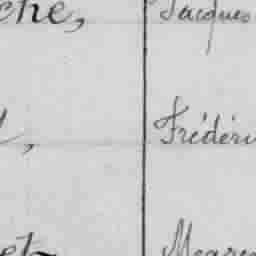 che, Jacques
, Frédéri
et